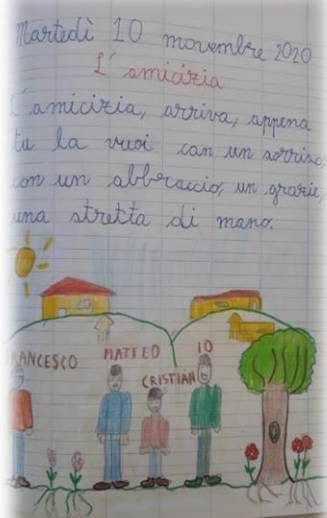 Martedì 10 novembre 2020
L'amicizia
L'amicizia, arriva, appena
tu la vuoi con un sorriso,
con un abbraccio, un grazie,
una stretta di mano.
FRANCESCO MATTEO IO
CRISTIAN